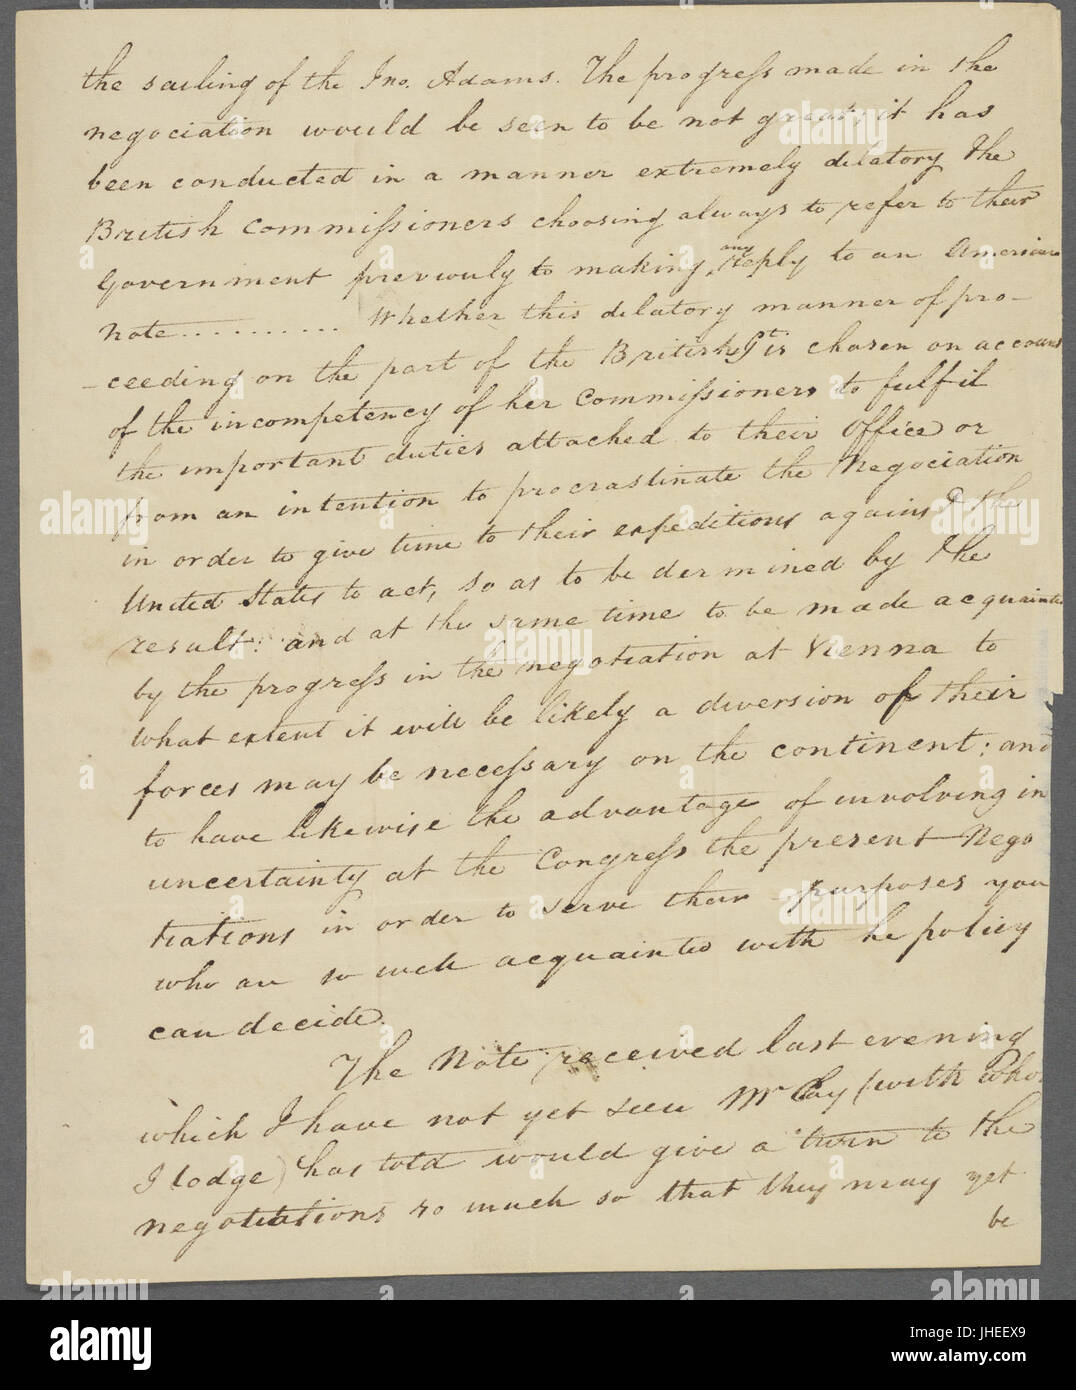 the sailing of the Jno. Adams. The progress made in the
negociation would be seen to be not great; it has
been conducted in a manner extremely dilatory The
British Commissioners choosing always to refer to their
Government previously to making any Reply to an American
note........... Whether this dilatory manner of pro-
-ceeding on the part of the British Gt is chosen on account
of the incompetency of her Commissioners to fulfil
the important duties attached to their Office or
from an intention to procrastinate the Negociation
in order to give time to their expeditions against the
United States to act, so as to be dermined by the
result: and at the same time to be made acquainted
by the progress in the negotiation at Vienna to
what extent it will be likely a diversion of their
forces may be necessary on the continent; and
to have likewise the advantage of involving in
uncertainty at the Congress the present Nego
tiations in order to serve their purposes you
who are so well acquainted with he policy
can decide.
The Note received last evening
which I have not yet seen Mr Clay (with whom
I lodge) has told would give a turn to the
negotiations so much so that they may yet
be
alamy
a
alamy
Image ID: JHEEX9
www.alamy.com